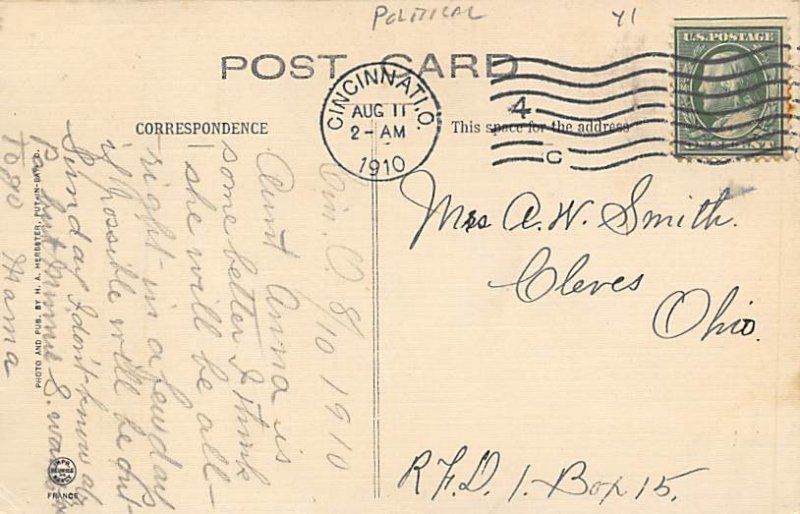 POLITICAL
41
POST CARD
CINCINNATI, O.
AUG 11
2-AM
1910
4
C
U.S. POSTAGE
ONE CENT
CORRESPONDENCE
This space for the address
Cin. O. 8/10 1910
Aunt Anna is
some better I think
she will be all-
right- in a few day
if possible will be out-
Sunday I don't know as
Pa but Minnie S. wants
to go Mama
Mrs A. W. Smith.
Cleves
Ohio.
R.F.D. 1. Box 15.
PHOTO AND PUB. BY H. A. HERBSTER, PUT-IN-BAY, O.
FRANCE